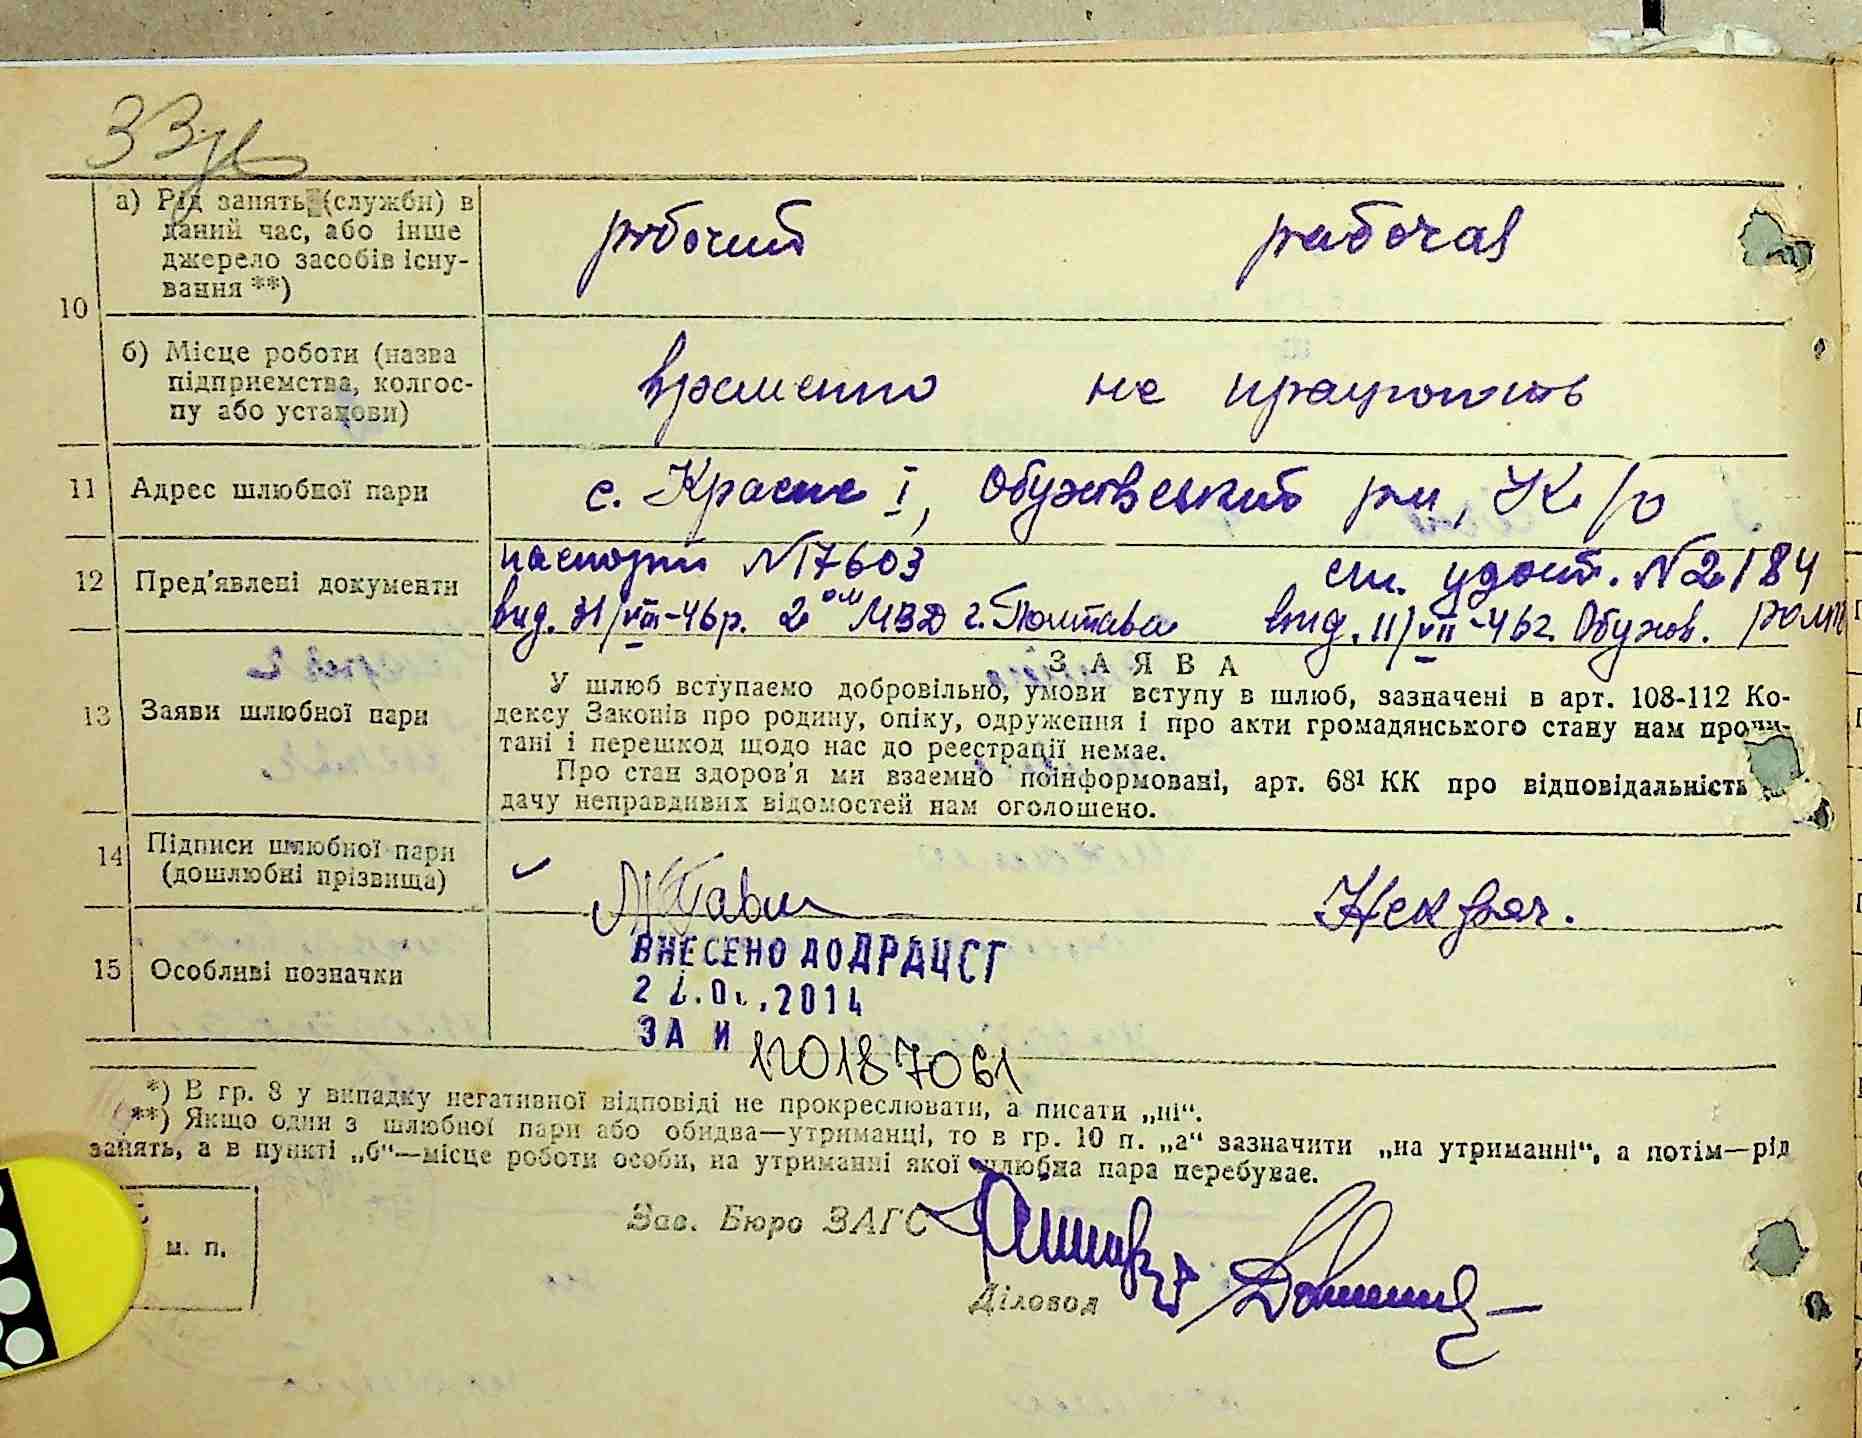 33
а) Рід занять (служби) в
даний час, або інше
джерело засобів існу-
вання **)
робочий рабочая
10
б) Місце роботи (назва
підприємства, колгос-
пу або установи)
временно не працюють
11 Адрес шлюбної пари
с. Красне I, Обухівський р-н, К/о
12 Пред'явлені документи
паспорт N17603 ст. удост. N2184
вид. 31/VIII-46р. 2 ом МВД г. Полтава вид. 11/VII-46г. Обухов.
13 Заяви шлюбної пари
ЗАЯВА
У шлюб вступаємо добровільно, умови вступу в шлюб, зазначені в арт. 108-112 Ко-
дексу Законів про родину, опіку, одруження і про акти громадянського стану нам прочи-
тані і перешкод щодо нас до реєстрації немає.
Про стан здоров'я ми взаємно поінформовані, арт. 68¹ КК про відповідальність
дачу неправдивих відомостей нам оголошено.
14 Підписи шлюбної пари
(дошлюбні прізвища)
Некряч.
15 Особливі позначки
ВНЕСЕНО ДО ДРАЦСГ
2014
ЗА И 120187061
*) В гр. 8 у випадку негативної відповіді не прокреслювати, а писати „ні“.
**) Якщо один з шлюбної пари або обидва—утриманці, то в гр. 10 п. „а“ зазначити „на утриманні“, а потім—рід
занять, а в пункті „б“—місце роботи особи, на утриманні якої шлюбна пара перебуває.
Зав. Бюро ЗАГС
м. п.
Діловод